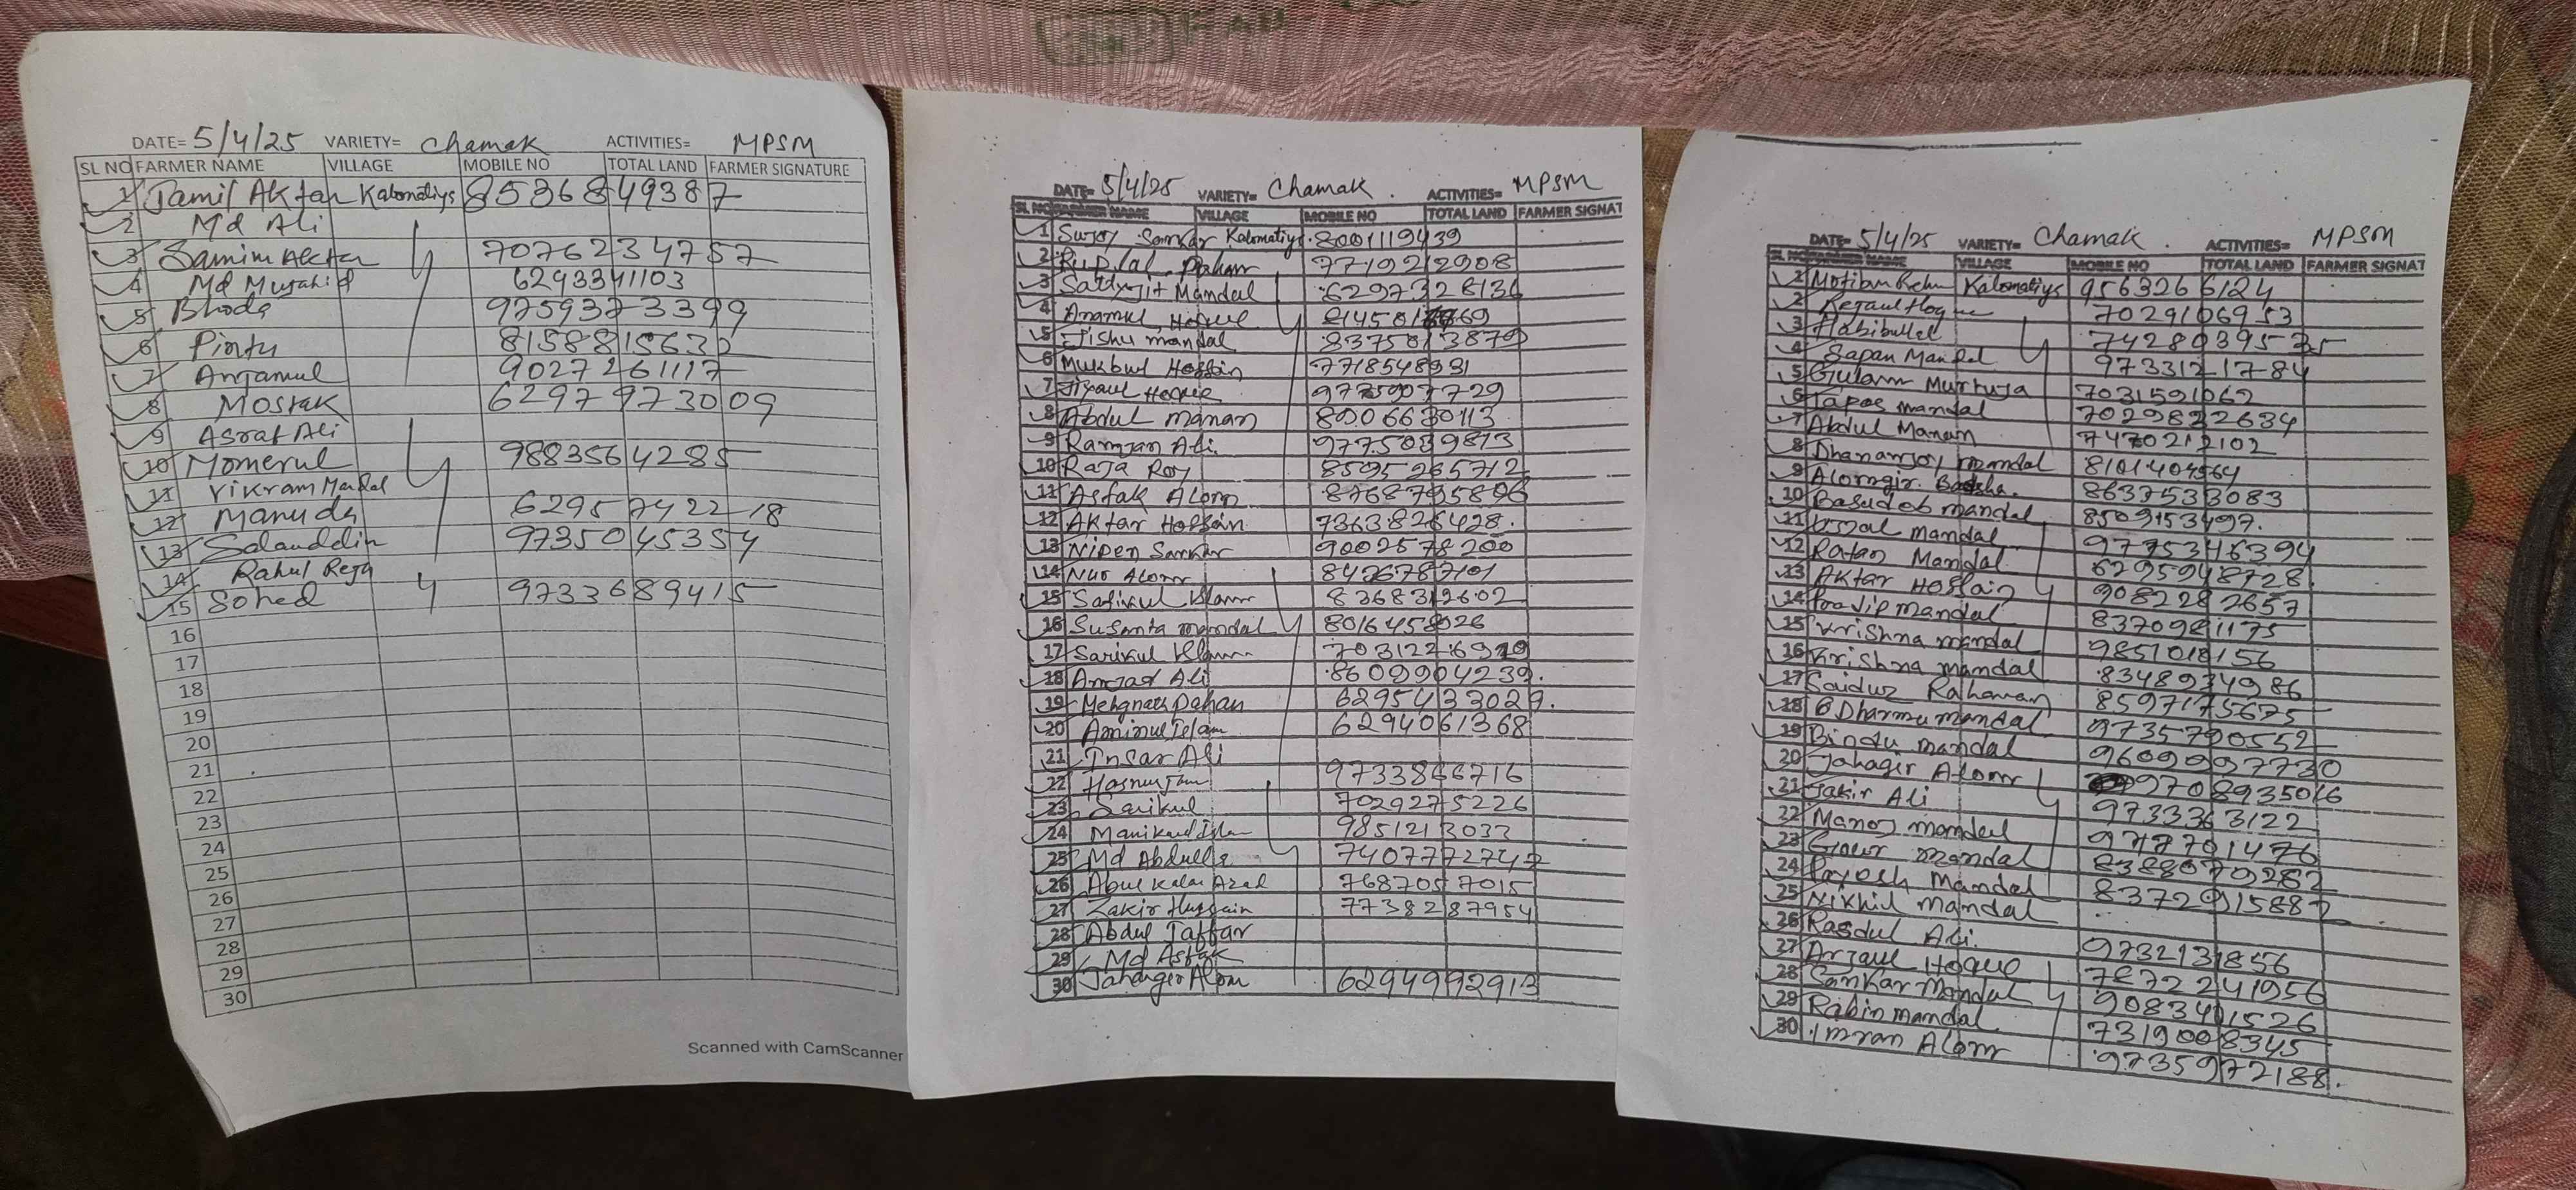 DATE= 5/4/25 VARIETY= Chamak ACTIVITIES= MPSM
SL NO FARMER NAME VILLAGE MOBILE NO TOTAL LAND FARMER SIGNATURE
1 Jamil Aktar Kalomatiys 8536849387
2 Md Ali
3 Samim Akter 7076234757
4 Md Mujahid 6293341103
5 Bhoda 9759373399
6 Pintu 8158815632
7 Anjamul 9027261117
8 Mostak 6297973009
9 Asraf Ali
10 Momerul 9883564285
11 Vikram Mandal
12 Manuda 6295742218
13 Salauddin 9735045354
14 Rahul Reja
15 Sohed 9733689415
16
17
18
19
20
21
22
23
24
25
26
27
28
29
30
Scanned with CamScanner
DATE= 5/4/25 VARIETY= Chamak. ACTIVITIES= MPSM
SL NO FARMER NAME VILLAGE MOBILE NO TOTAL LAND FARMER SIGNAT
1 Sujoy Sarkar Kalomatiys 8001119439
2 Ruplal Pahan 7719212908
3 Satyajit Mandal 6297328136
4 Anamul Hoque
5 Jishu mandal 8375013879
6 Mukbul Hossin 7718548931
7 Jiyaul Hoque 9775907729
8 Abdul manan 8006630113
9 Ramjan Ali. 9775039813
10 Raja Roy 8595265712
11 Asfak Alom 8768795806
12 Aktar Hossain 7363826428.
13 Nipen Sarkar 9002578200
14 Nur Alom 8426787101
15 Safikul Islam 8368312602
16 Susanta mandal 8016458026
17 Sarikul Islam
18 Amjad Ali 8609904239.
19 Mehgnath Pahan 6295433029.
20 Aminul Islam 6294061368
21 Insar Ali
22 9733866716
23 Sarikul 7029275226
24 9851213033
25 Md Abdulla 7407772747
26 Abul Kalam Azad 7687057015
27 Zakir Hussain 7738287954
28 Abdul Jaffar
29 Md Asfak
30 Jahangir Alom 6294992913
DATE= 5/4/25 VARIETY= Chamak. ACTIVITIES= MPSM
SL NO FARMER NAME VILLAGE MOBILE NO TOTAL LAND FARMER SIGNAT
1 Motibur Kalomatiys 9563266124
2 Rejaul Hoque 7029106953
3 Habibullel
4 Sapan Mandal 9733121784
5 Gulam Murtuja 7031591062
6 Tapas mandal 7029822634
7 Abdul Manan 7470212102
8 Dhananjoy mandal 8101404564
9 Alomgir Badsha. 8637533083
10 Basudeb mandal 8509153497.
11 Ujjal mandal 9775346394
12 Ratan Mandal 6295948728.
13 Aktar Hossain 9082282657
14 Pradip mandal 8370981175
15 Krishna mandal 9851018156
16 Krishna mandal 8348934986
17 Saidur Rahaman 8597175675
18 Dharmu mandal 9735790552
19 Bindu mandal 9609997730
20 Jahagir Alom
21 Jakir Ali 9733363122
22 Manoj mandal 9717701476
23 Gour mandal 8388070282
24 Payesh Mandal 8372915887
25 Nikhil mandal
26 Rasdul Ali. 9732131856
27 Arjaul Hoque 7872241956
28 Sankar Mandal 9083401526
29 Rabin mandal 7319008345
30 Imran Alom 9735972188.